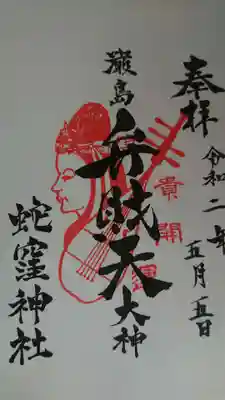 奉拝
令和二年
五月五日
巖島
弁財天
大神
貴
開
蛇窪神社